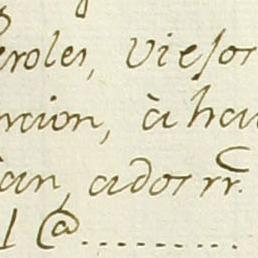 eroles, viejos
ncion, à ha
an, ados rr.
1 @..............